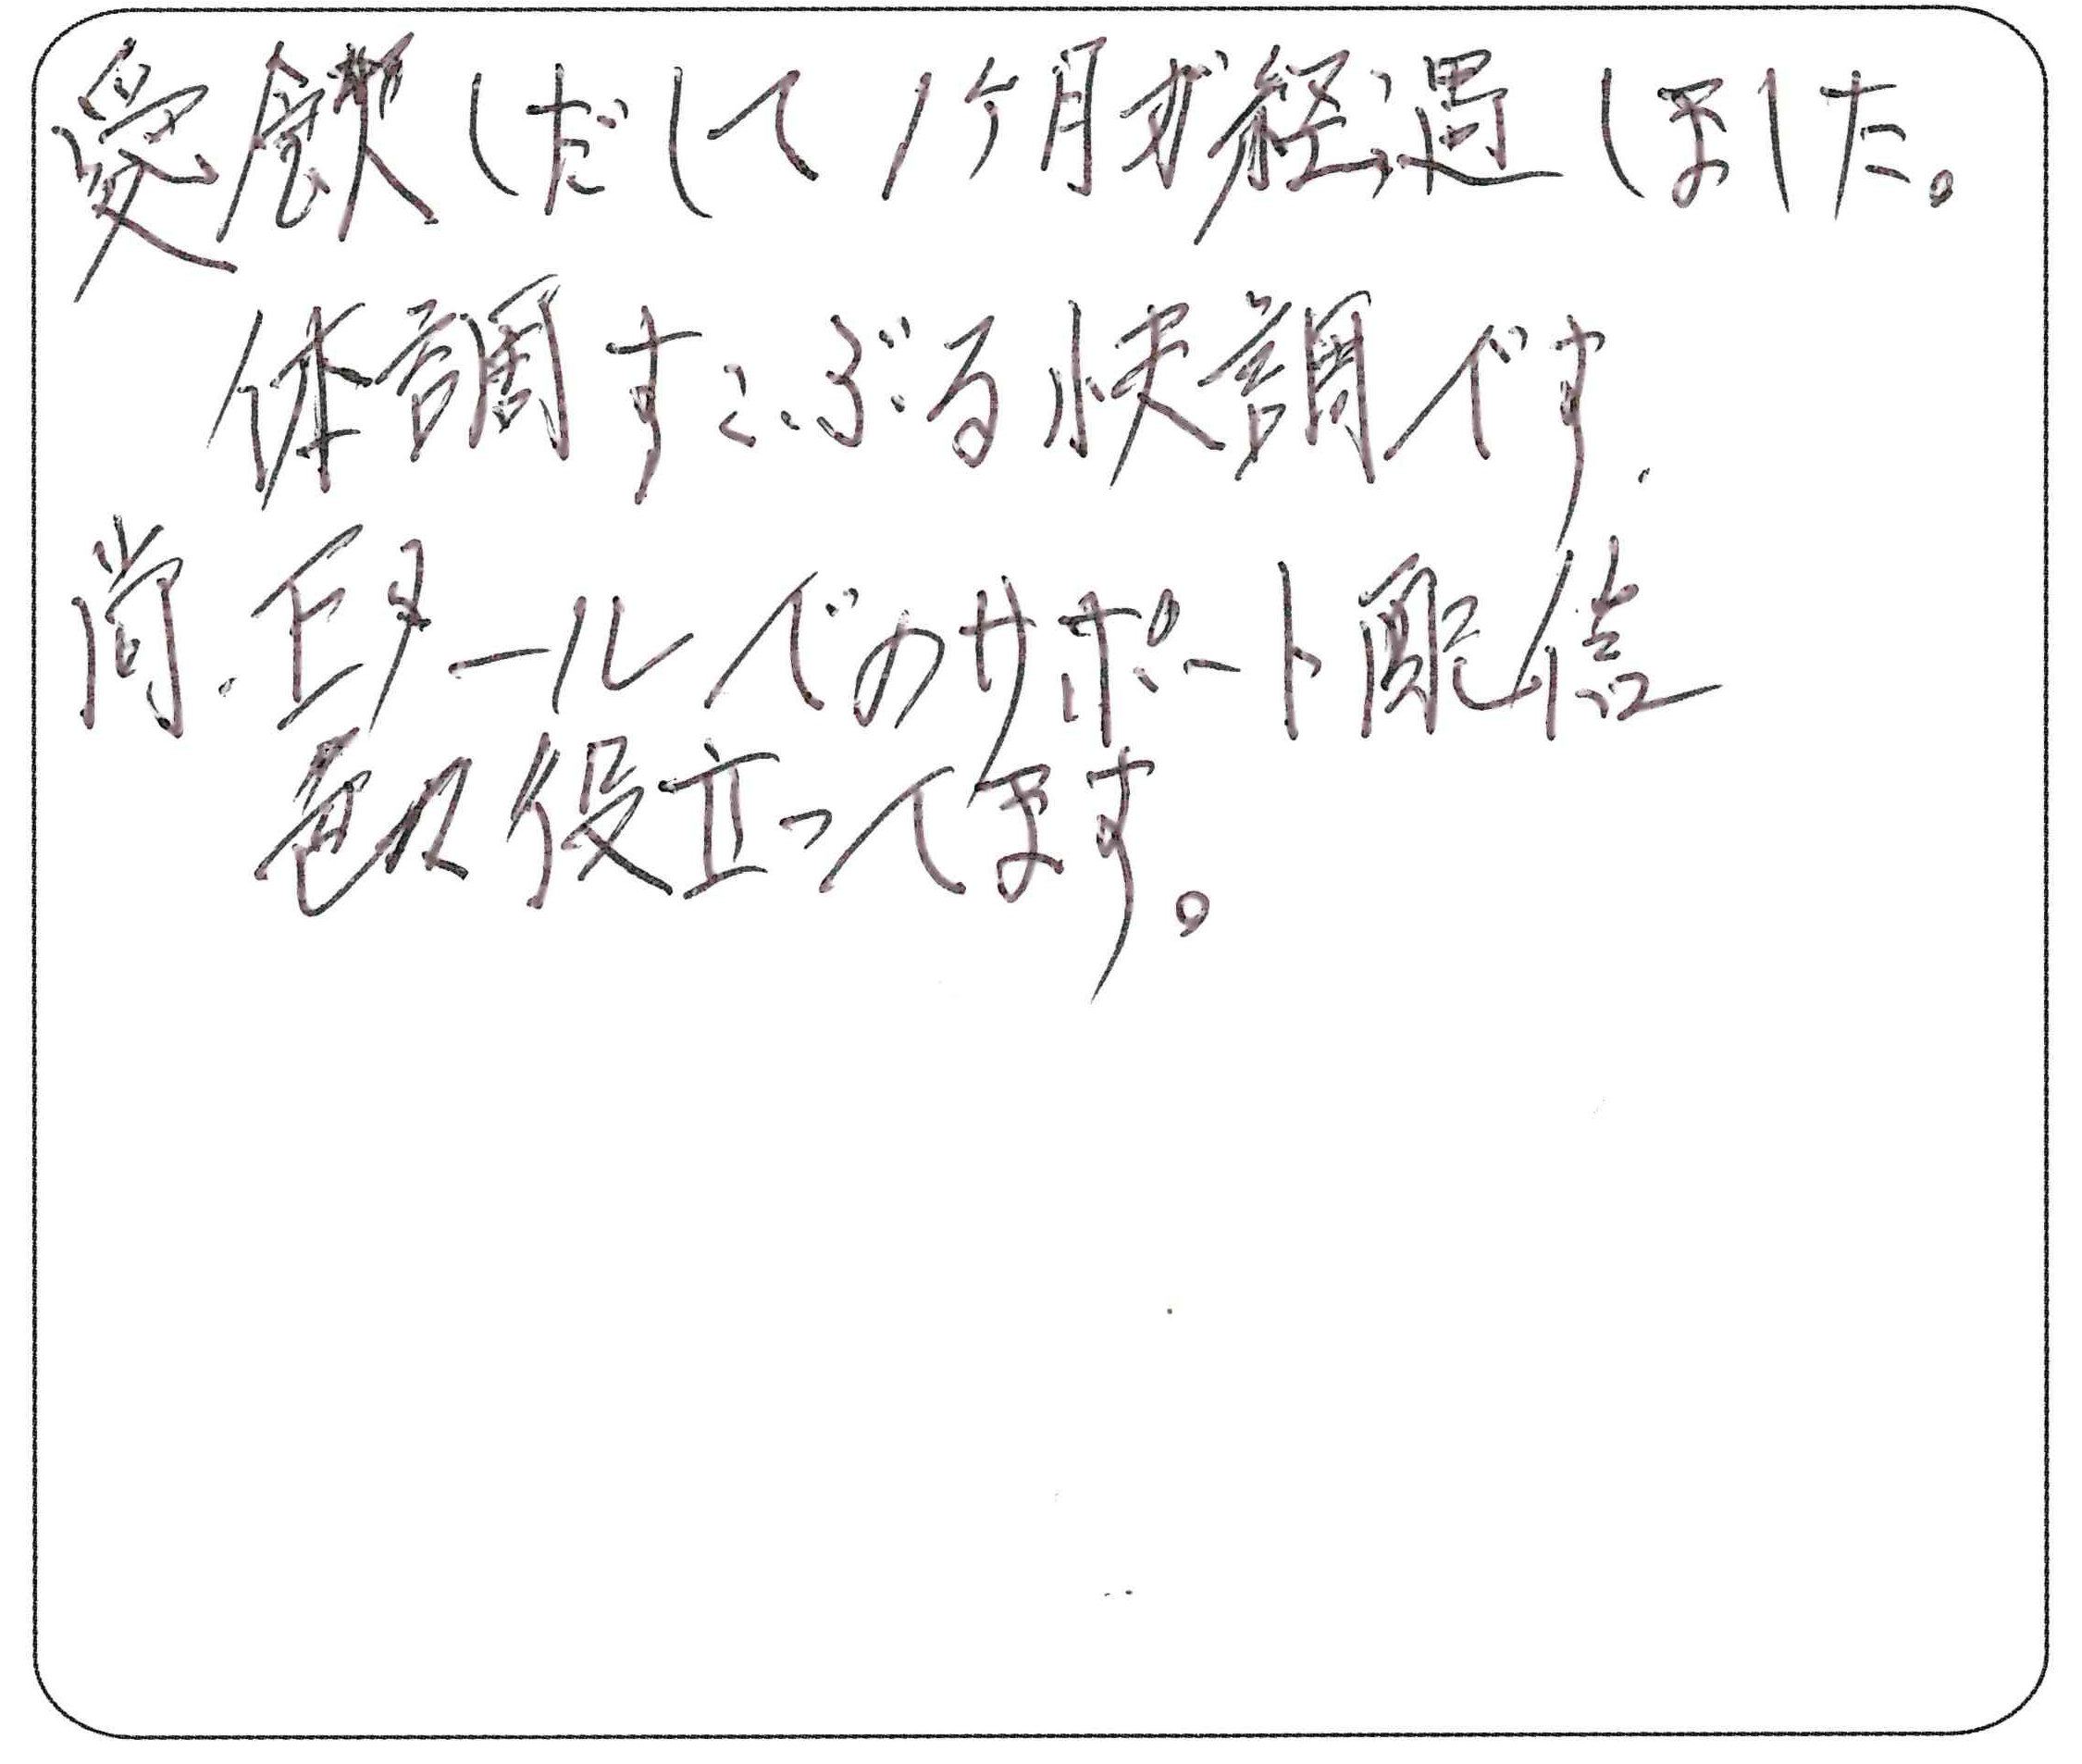 愛飲しだして1ケ月が経過しました。
体調すこぶる快調です.
尚.Eメールでのサポート配信
色々役立ってます。